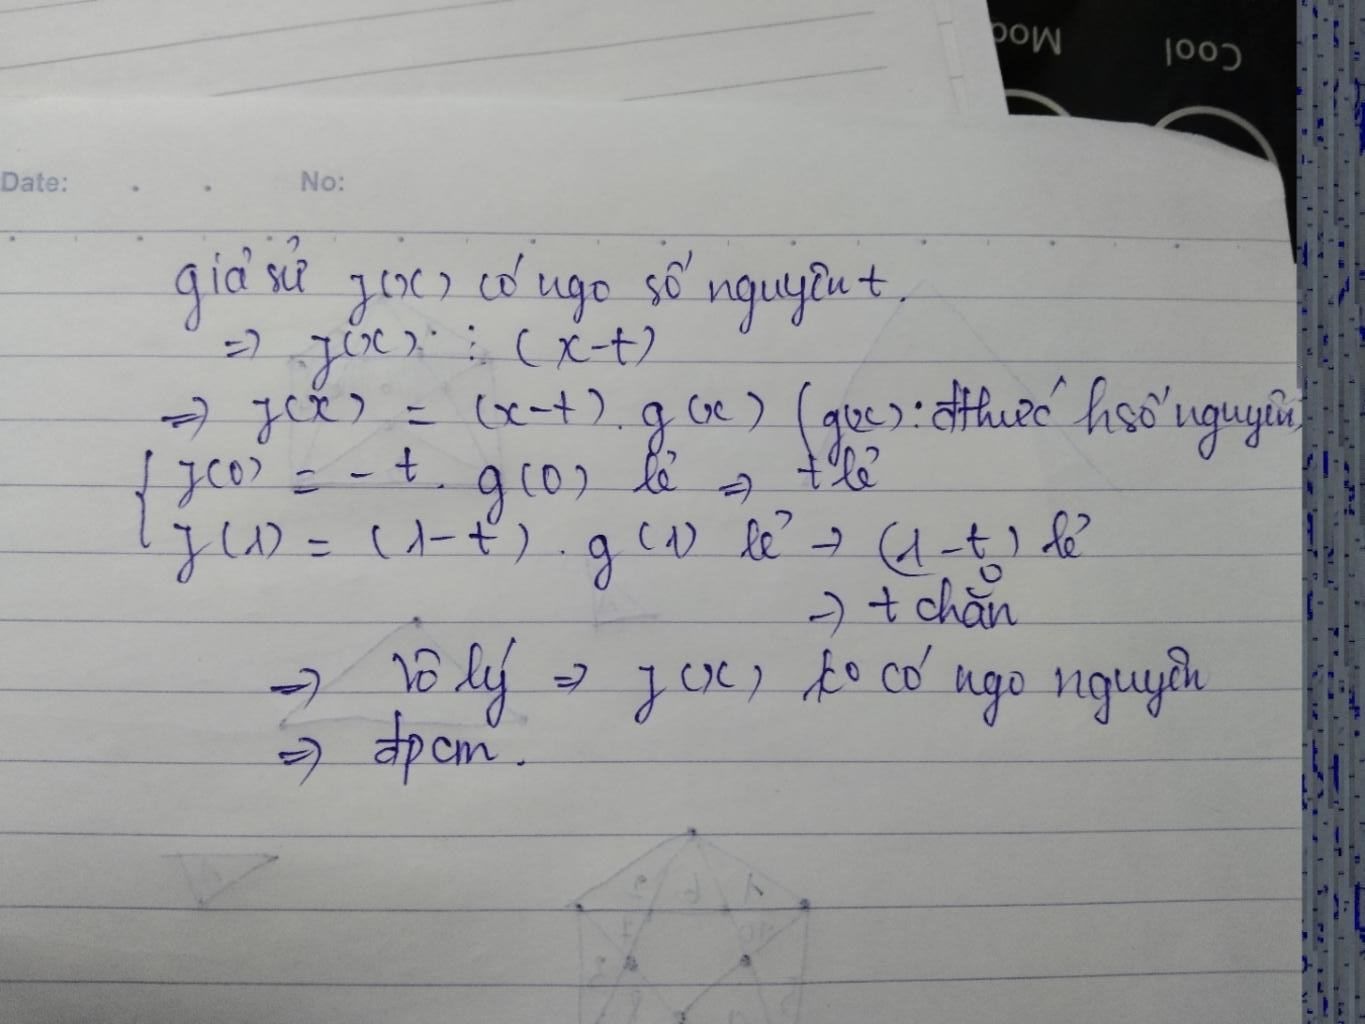 Cool
Mod
Date: . . No:
giả sử f(x) có ngo số nguyên t.
=> f(x) ⋮ (x-t)
=> f(x) = (x-t). g(x) (g(x): đthức hsố nguyên)
{ f(0) = - t. g(0) lẻ => t lẻ
f(1) = (1-t). g(1) lẻ → (1-t) lẻ
=> t chẵn
=> Vô lý => f(x) ko có ngo nguyên
=> đpcm.